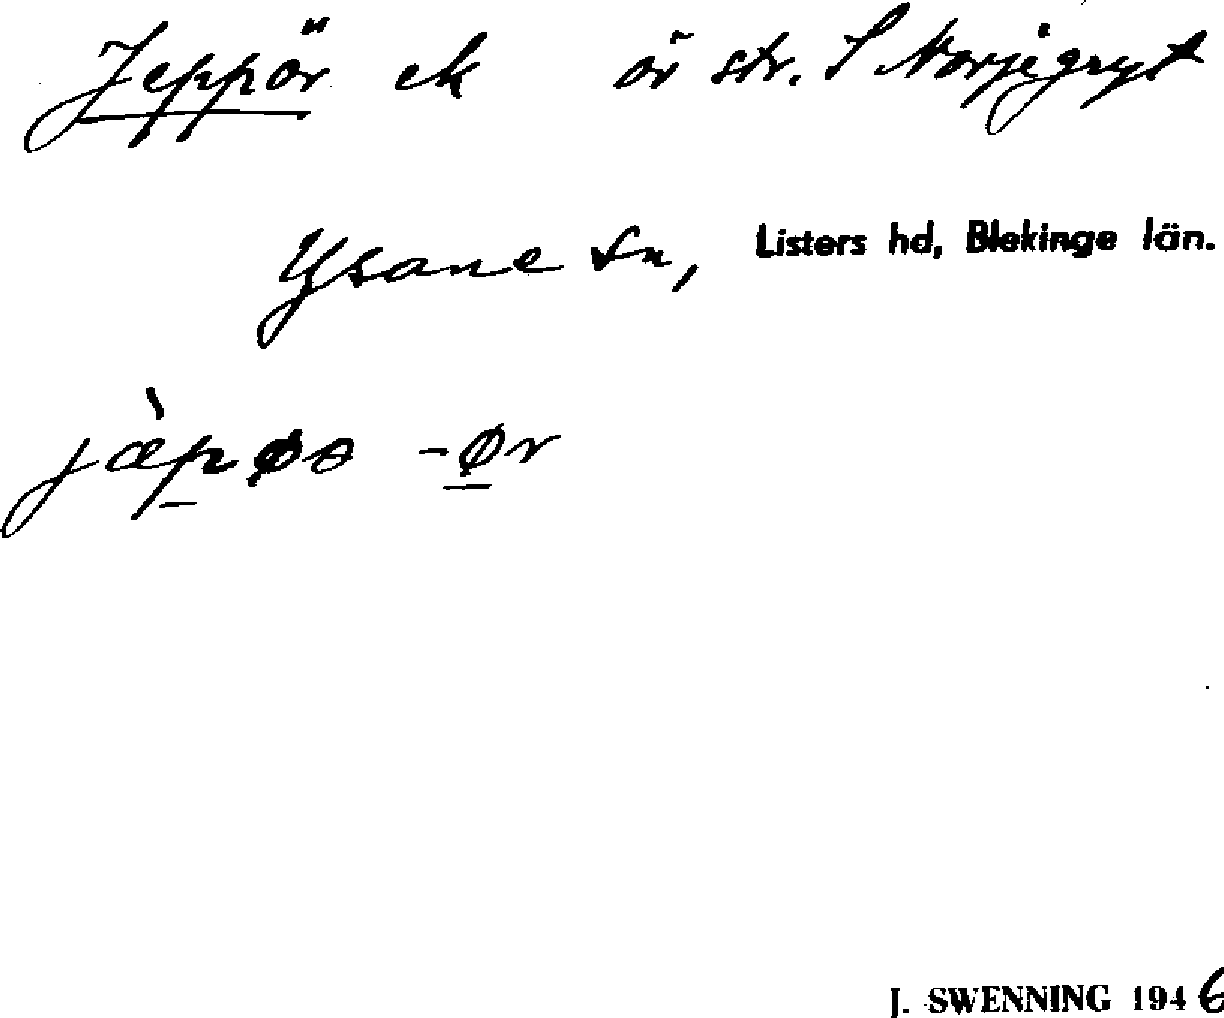 Jeppör ek ör str. S Norjegryt
Ysane sn, Listers hd, Blekinge län.
jæ̀pøə -ør
J. SWENNING 1946